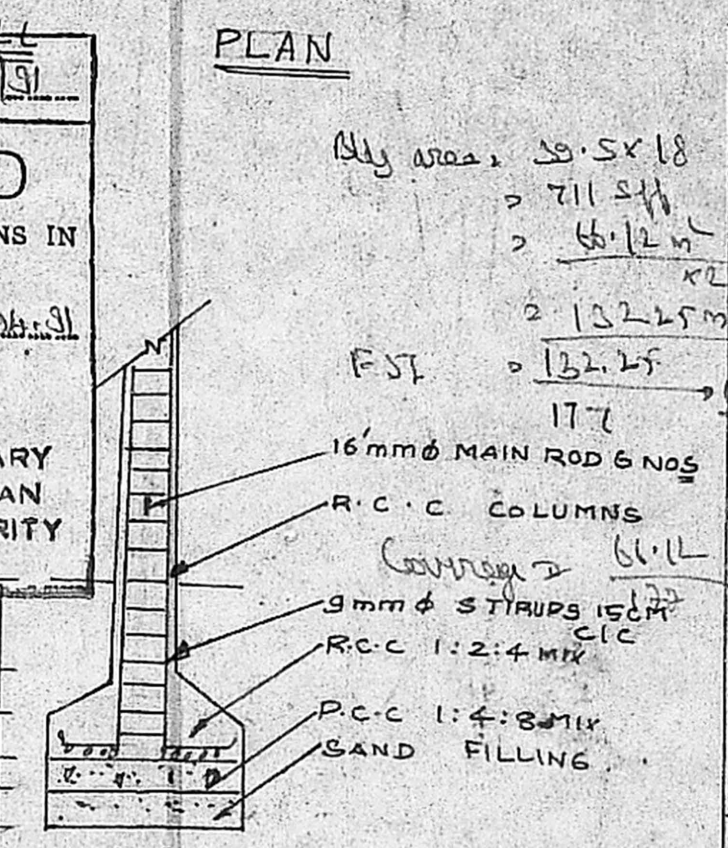 91
PLAN
NS IN
91
ARY
AN
RITY
Bldg area = 39.5x18
= 711 Sft
= 66.12 m²
x2
= 132.25 m
FSI = 132.25
177
16 mm ϕ MAIN ROD 6 NOS
R.C.C COLUMNS
Coverage = 66.12
177
9mm ϕ STIRUPS 15CM
C/C
R.C.C 1:2:4 MIX
P.C.C 1:4:8 MIX
SAND FILLING